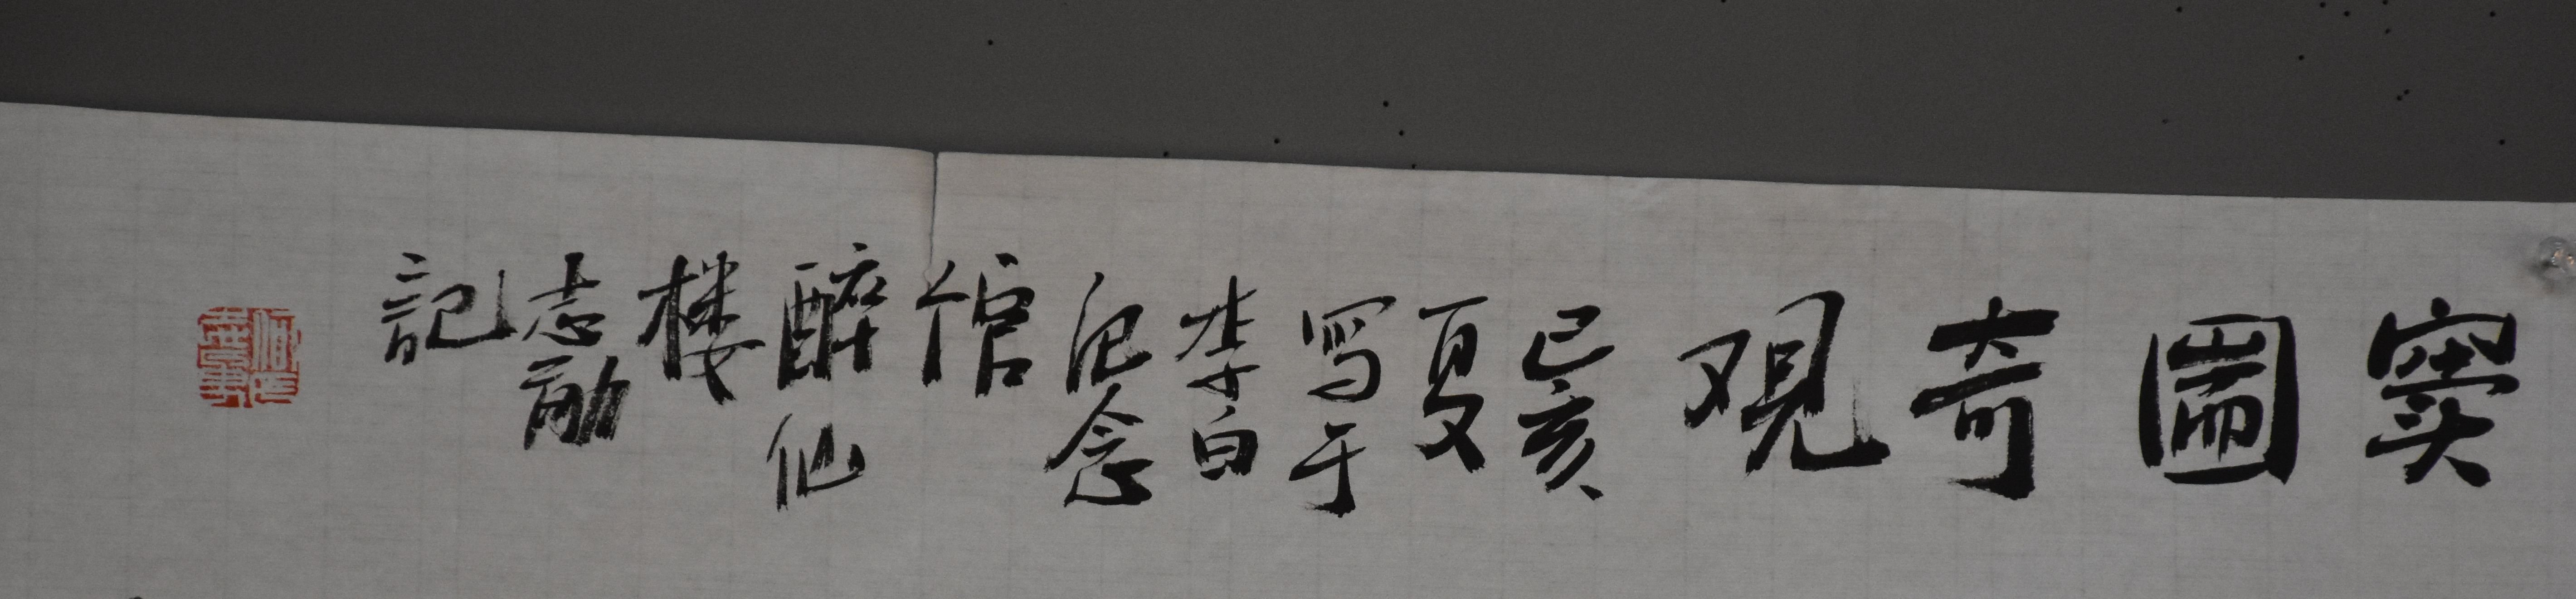 窦圖奇观
己亥
夏
写于
李白
纪念
馆
醉仙
楼
志勛
記